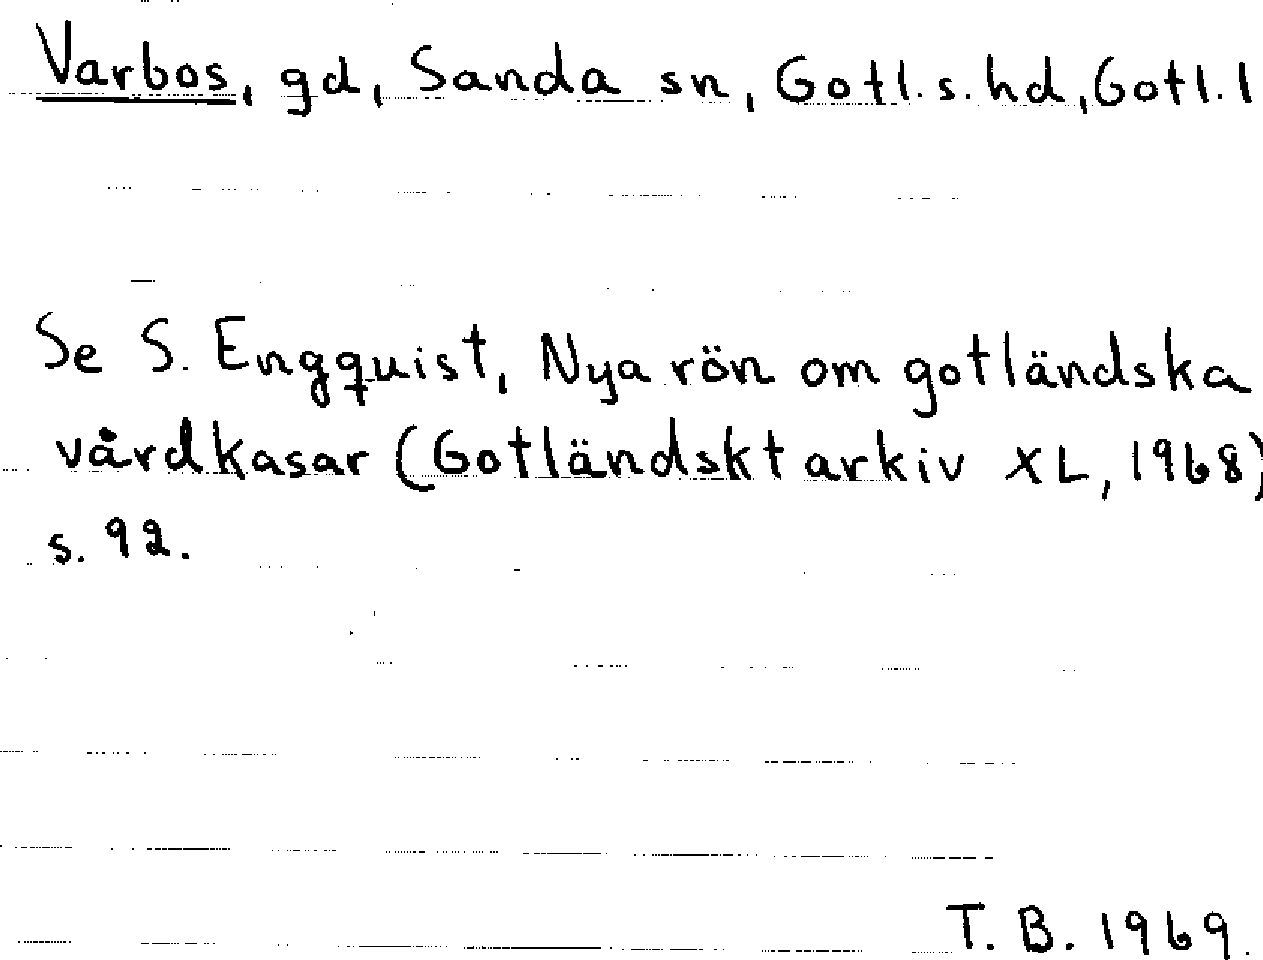 Varbos, gd, Sanda sn, Gotl. s. hd, Gotl. l
Se S. Engquist, Nya rön om gotländska
vårdkasar (Gotländskt arkiv XL, 1968)
s. 92.
T. B. 1969.